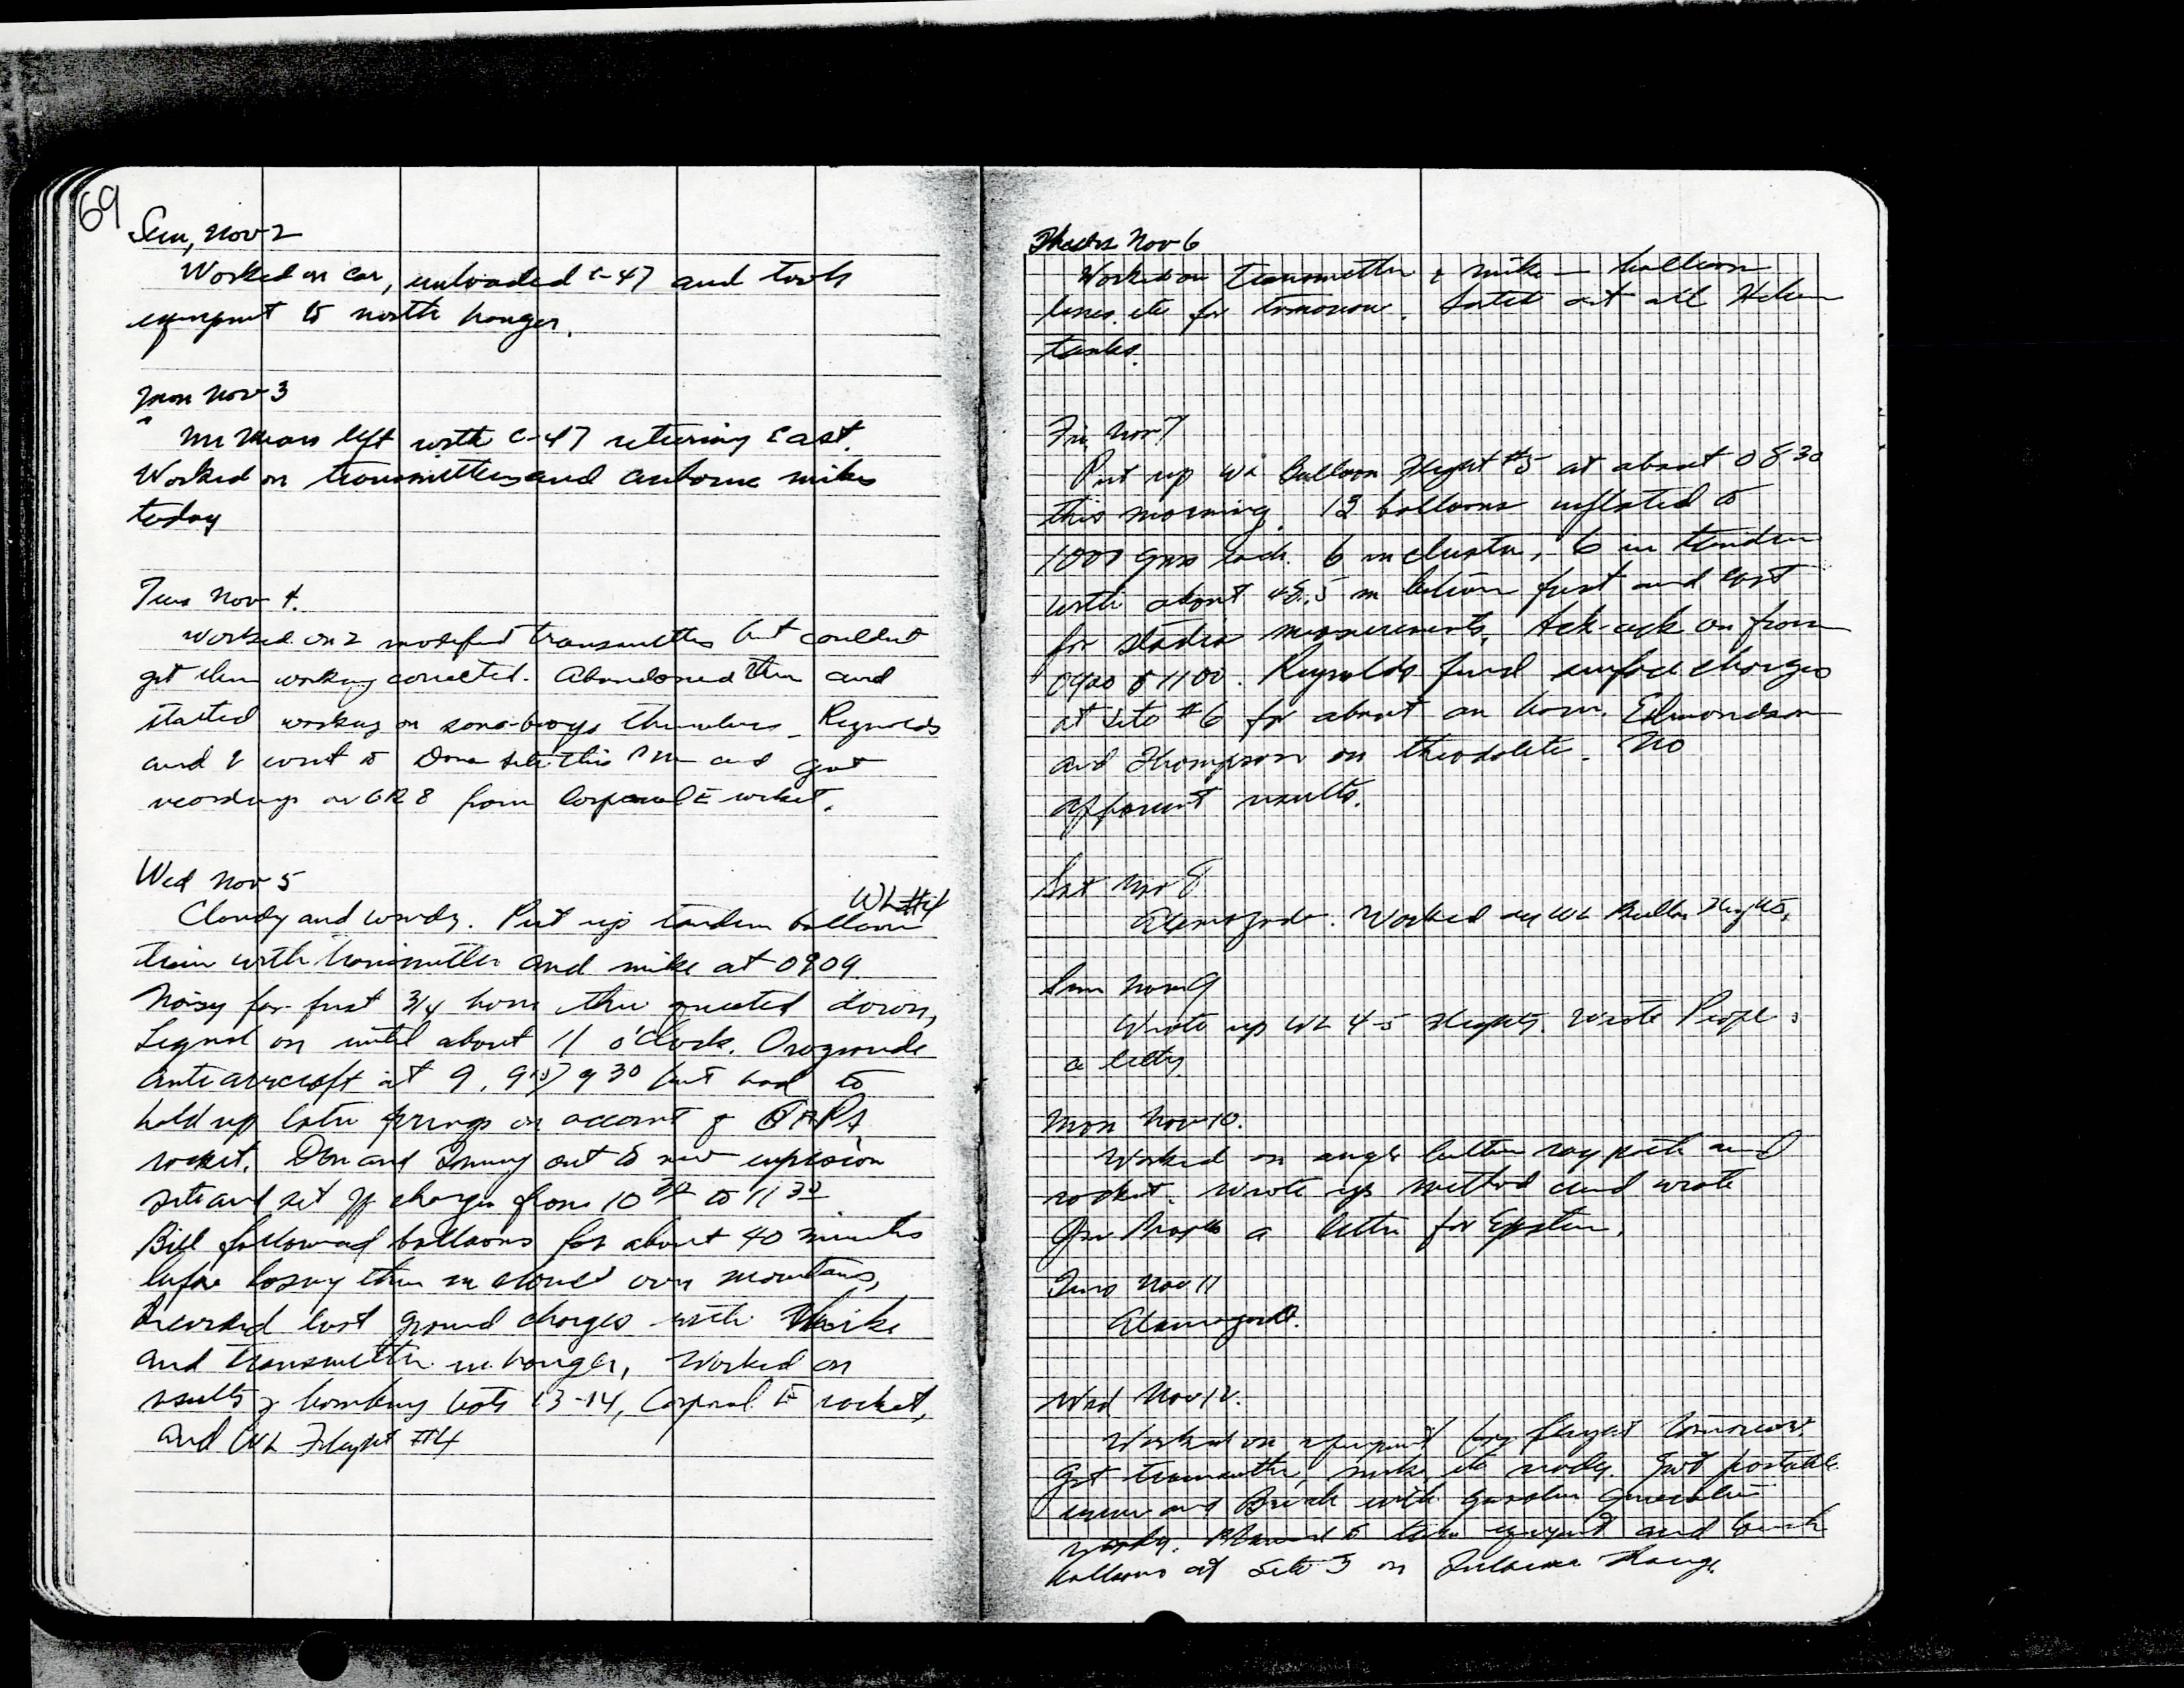 69
Sun, Nov 2
Worked on car, unloaded C-47 and took
equipment to north hangar.
Mon Nov 3
Mr Mears left with C-47 returning East.
Worked on transmitters and airborne mikes
today
Tues Nov 4.
Worked on 2 modified transmitters but couldnt
get them working corrected. Abandoned them and
started working on sono-buoys themselves. Reynolds
and I went to Dona site this PM and got
recordings on GR8 from Corporal E rocket.
Wed Nov 5
WL#4
Cloudy and windy. Put up tandem balloon
train with transmitter and mike at 0909.
Noisy for first 3/4 hour then quieted down,
Signal on until about 11 o'clock. Orogrande
antiaircraft at 9, 915, 930 but had to
hold up later firings on account of GAPA
rocket. Don and Sonny out to new explosion
site and set off charges from 10 30 to 11 30
Bill followed balloons for about 40 minutes
before losing them in clouds over mountains,
Recorded last ground charges with mike
and transmitter in hangar, Worked on
results of bombing tests 13-14, Corporal E rocket,
and WL Flight #4
Thurs Nov 6
Worked on transmitter & mike - balloon
lines, etc for tomorrow. Sorted out all Helium
tanks.
Fri Nov 7
Put up WL Balloon Flight #5 at about 0830
this morning. 12 balloons inflated to
1000 gms each. 6 in cluster, 6 in tandem
with about 48.5 m between first and last
for stadia measurements. Ack-ack on from
0900 to 1100. Reynolds fired surface charges
at site #6 for about an hour. Edmondson
and Thompson on theodolite. No
apparent results.
Sat Nov 8
Alamogordo. Worked on WL Balloon Flights.
Sun Nov 9
Wrote up WL 4-5 Flights. Wrote Peoples
a letter
Mon Nov 10.
Worked on angle between ray path and
rocket. Wrote up method and wrote
a letter for Epstein.
Tues Nov 11
Alamogordo.
Wed Nov 12.
Worked on equipment for flight tomorrow.
Got transmitter, mike, etc ready. Got portable
and Brush with gasoline generator
ready. Planned to take equipment and launch
balloons at Site 3 on Tularosa Range